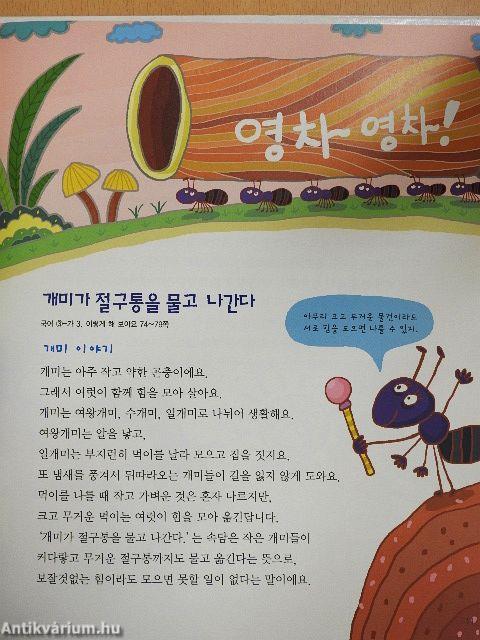 영차 영차!
개미가 절구통을 물고 나간다
국어 ③-가 3. 이렇게 해 보아요 74~79쪽
아무리 크고 무거운 물건이라도
서로 힘을 모으면 나를 수 있지.
개미 이야기
개미는 아주 작고 약한 곤충이에요.
그래서 여럿이 함께 힘을 모아 살아요.
개미는 여왕개미, 수개미, 일개미로 나뉘어 생활해요.
여왕개미는 알을 낳고,
일개미는 부지런히 먹이를 날라 모으고 집을 짓지요.
또 냄새를 풍겨서 뒤따라오는 개미들이 길을 잃지 않게 도와요.
먹이를 나를 때 작고 가벼운 것은 혼자 나르지만,
크고 무거운 먹이는 여럿이 힘을 모아 옮긴답니다.
'개미가 절구통을 물고 나간다.'는 속담은 작은 개미들이
커다랗고 무거운 절구통까지도 물고 옮긴다는 뜻으로,
보잘것없는 힘이라도 모으면 못할 일이 없다는 말이에요.
Antikvárium.hu